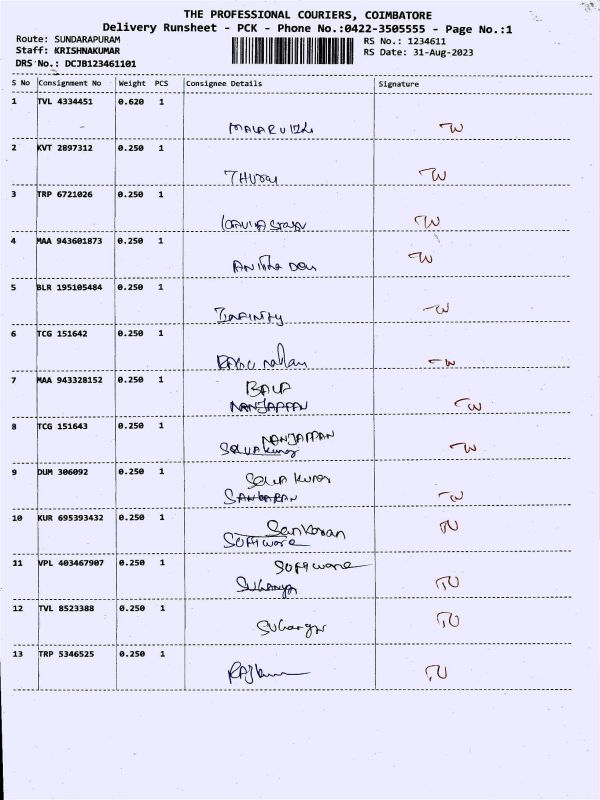 THE PROFESSIONAL COURIERS, COIMBATORE
Delivery Runsheet - PCK - Phone No.:0422-3505555 - Page No.:1
Route: SUNDARAPURAM
Staff: KRISHNAKUMAR
DRS No.: DCJB123461101
RS No.: 1234611
RS Date: 31-Aug-2023
S No Consignment No Weight PCS Consignee Details Signature
1 TVL 4334451 0.620 1
2 KVT 2897312 0.250 1
THURAI
3 TRP 6721026 0.250 1
4 MAA 943601873 0.250 1
5 BLR 195105484 0.250 1
INFINITY
6 TCG 151642 0.250 1
7 MAA 943328152 0.250 1
BALA
NANJAPPAN
8 TCG 151643 0.250 1
NANJAPPAN
9 DUM 306092 0.250 1
SANKARAN
10 KUR 695393432 0.250 1
Sankaran
Software
11 VPL 403467907 0.250 1
Software
Sukanya
12 TVL 8523388 0.250 1
13 TRP 5346525 0.250 1